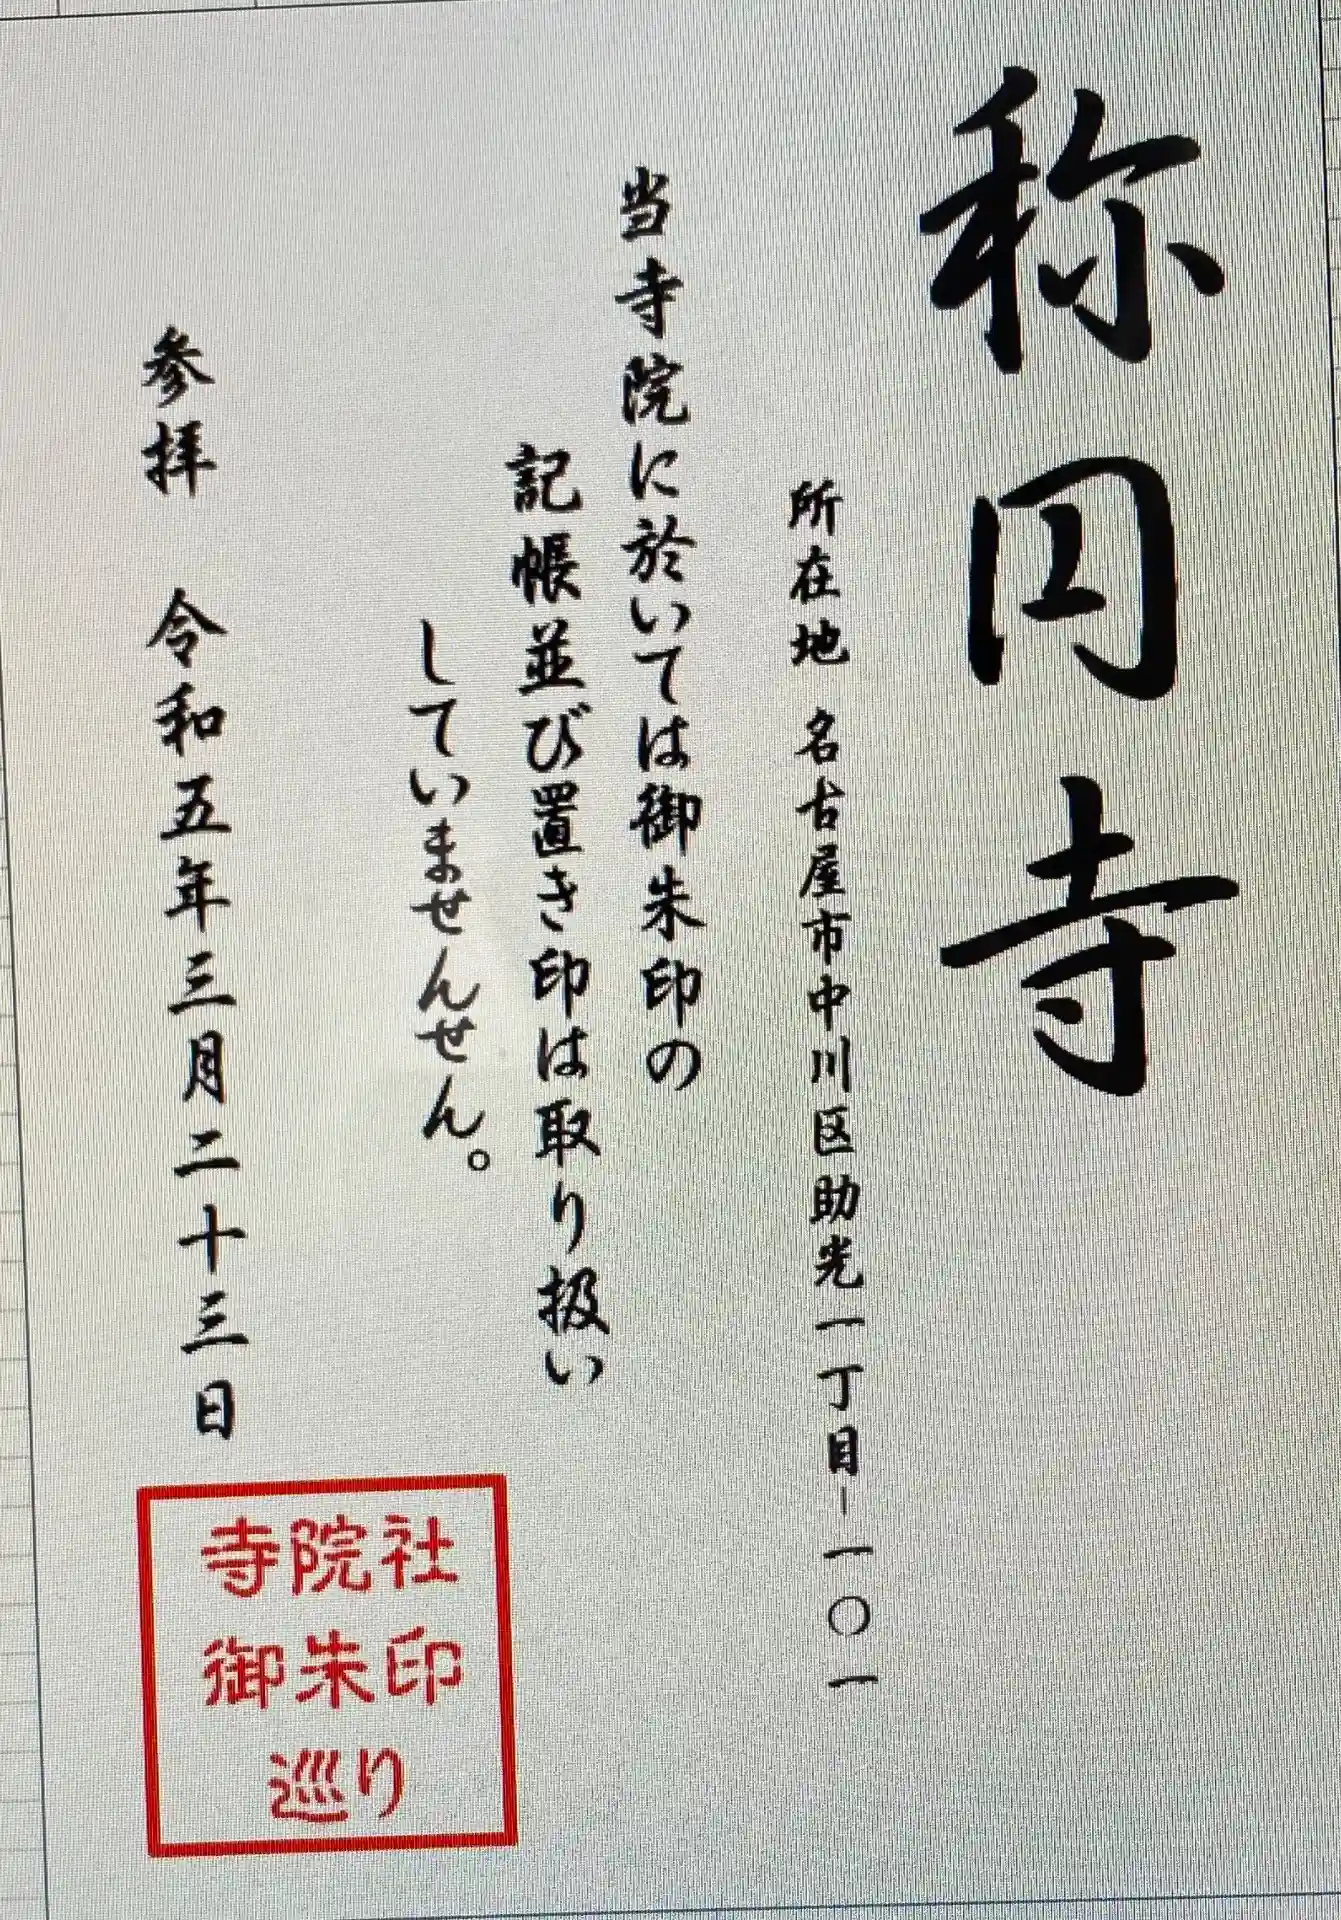 称円寺
所在地 名古屋市中川区助光一丁目-一〇一
当寺院に於いては御朱印の
記帳並び置き印は取り扱い
していませんせん。
参拝 令和五年三月二十三日
寺院社
御朱印
巡り